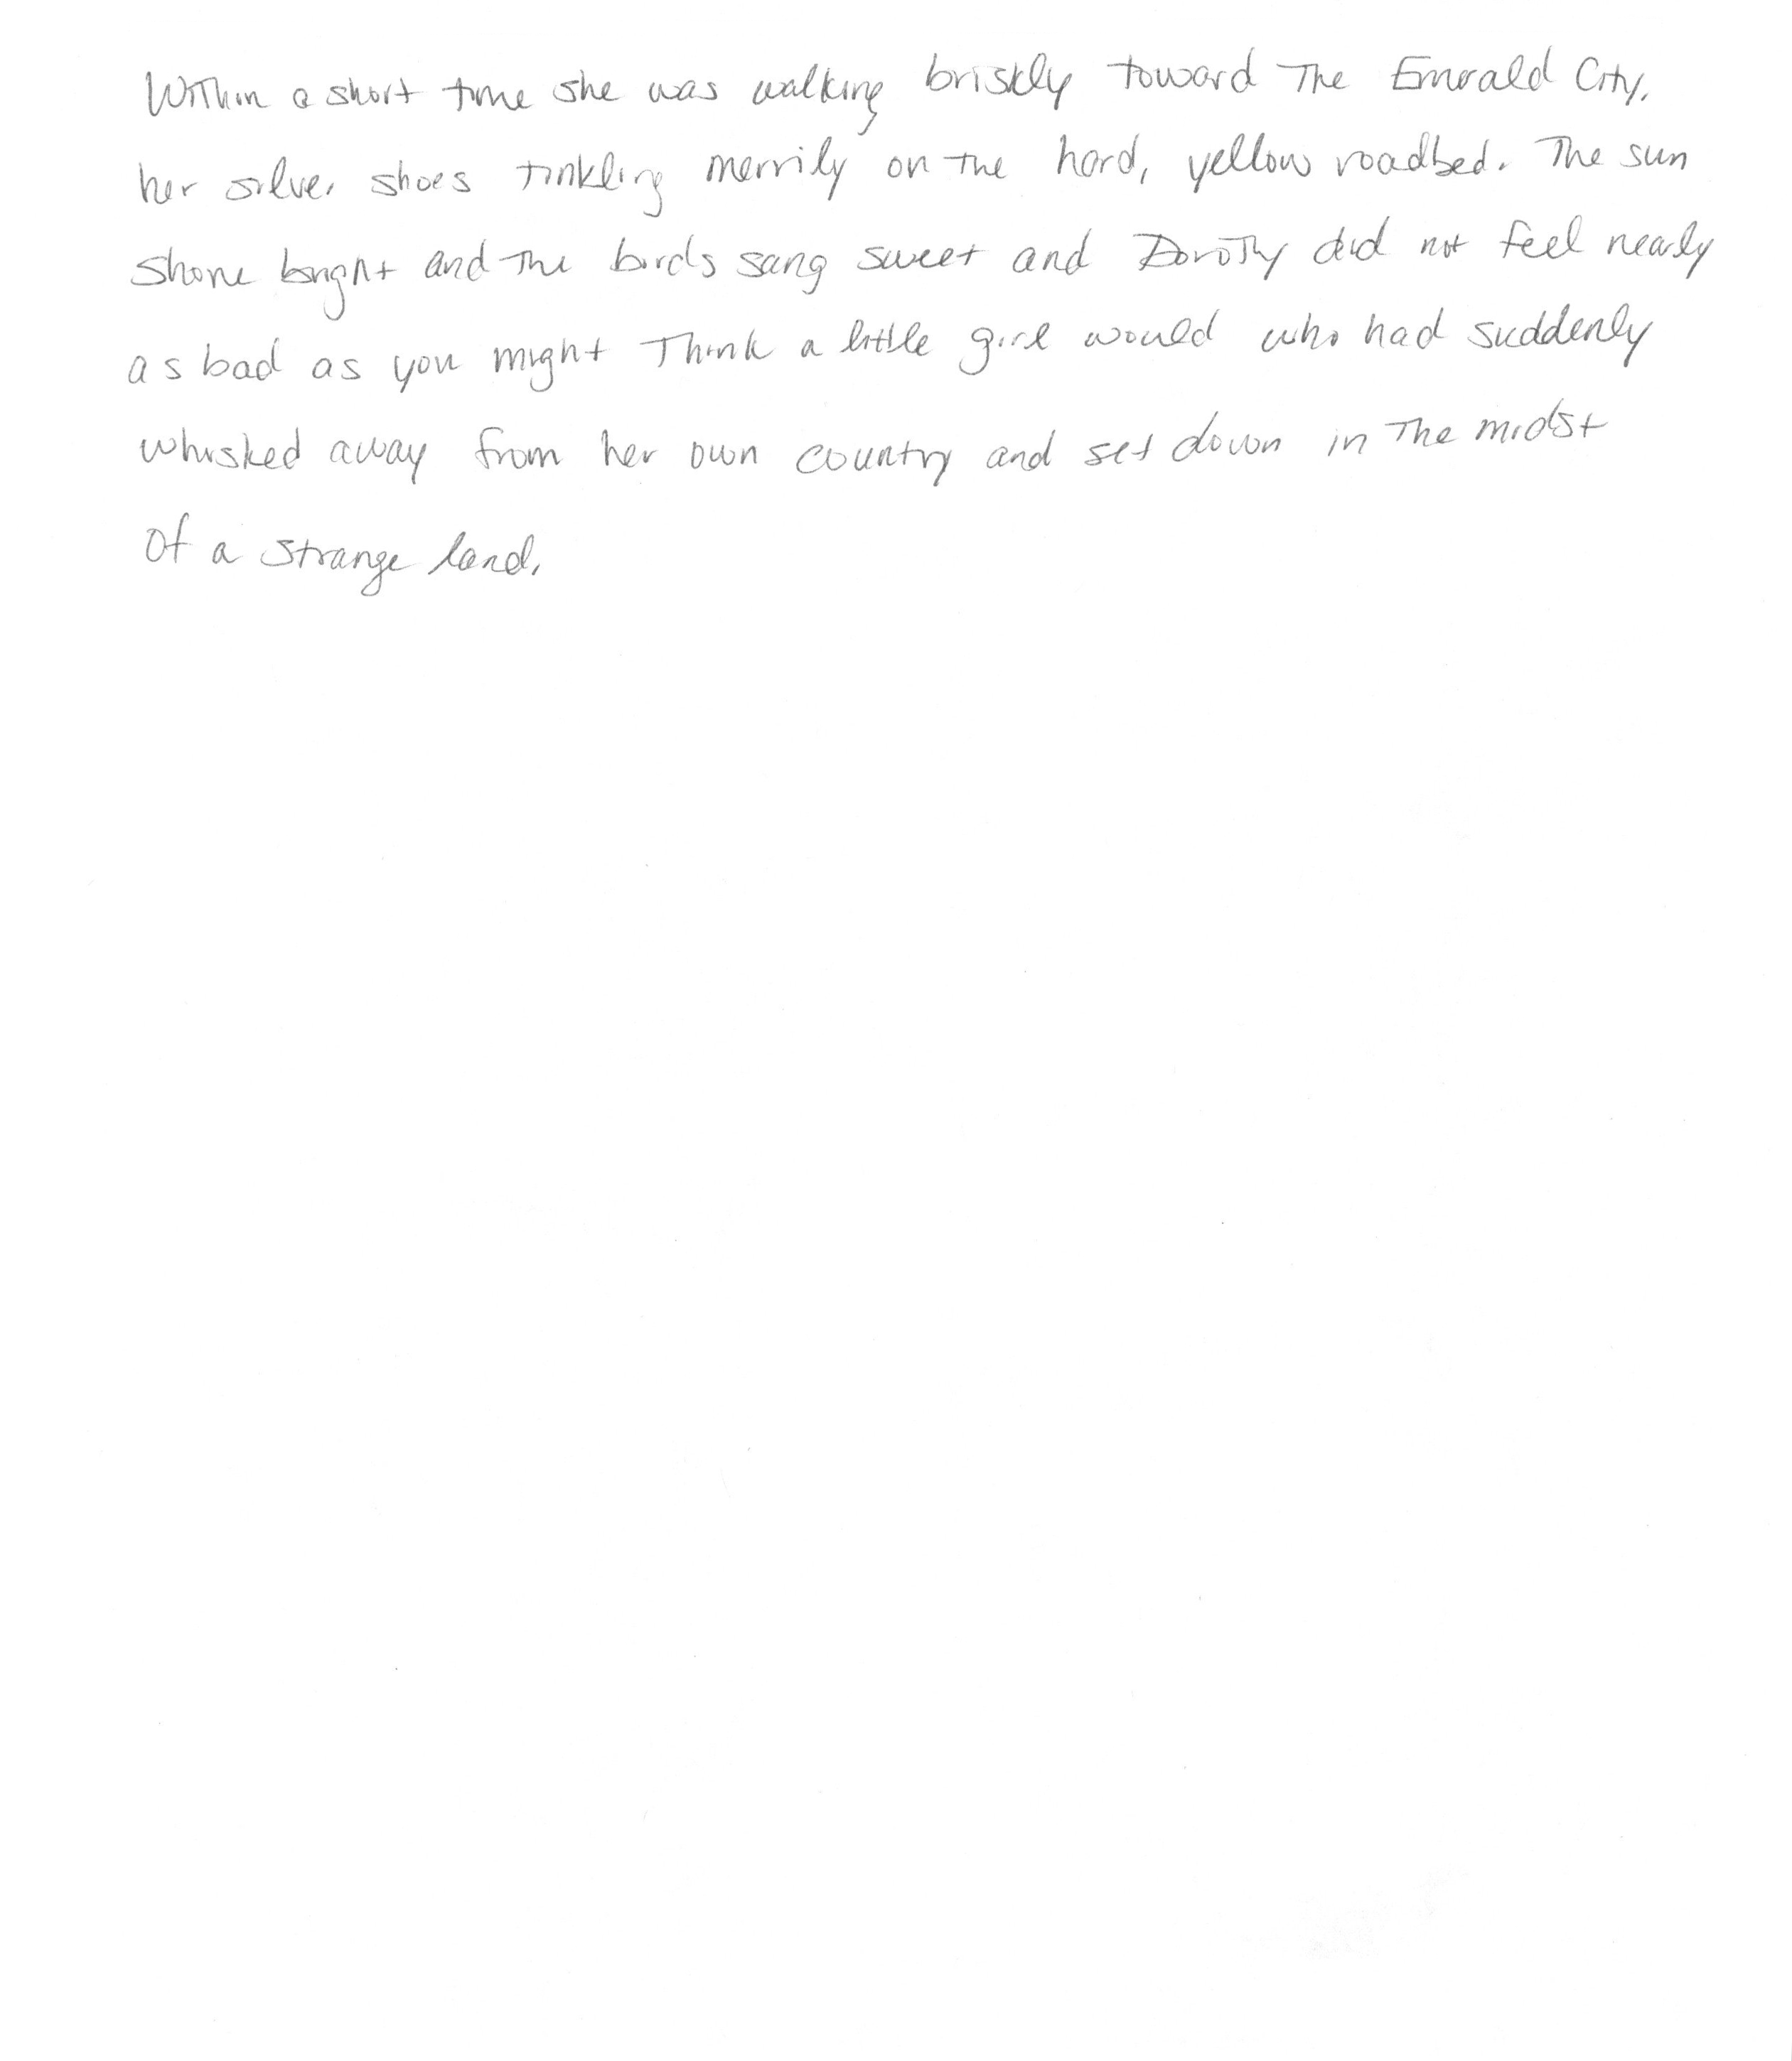 Within a short time she was walking briskly toward The Emerald City,
her silver shoes tinkling merrily on the hard, yellow roadbed. The sun
shone bright and the birds sang sweet and Dorothy did not feel nearly
as bad as you might Think a little girl would who had suddenly
whisked away from her own country and set down in The midst
of a strange land.